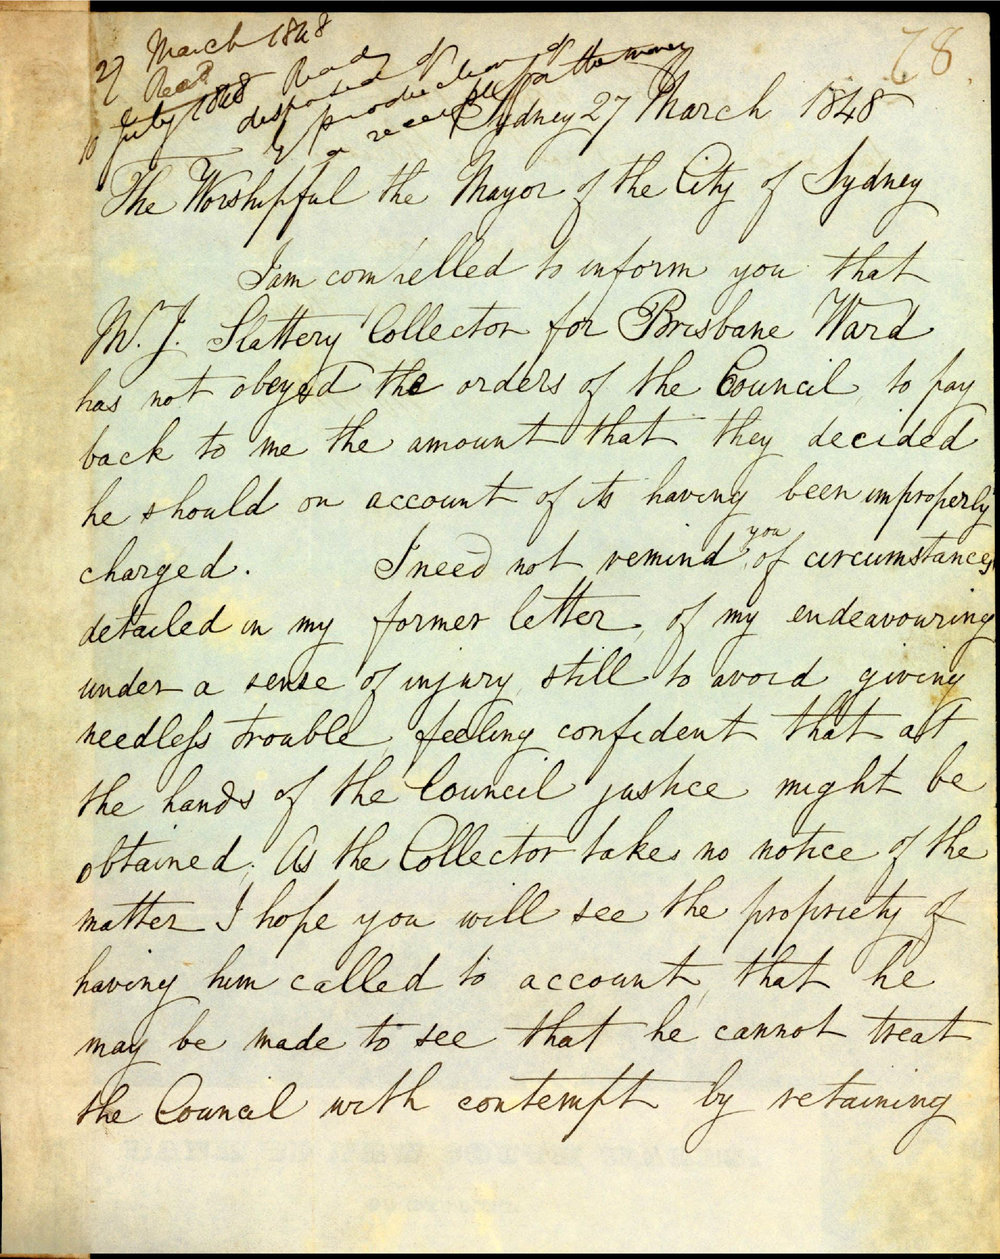 27 March 1848
Read
10 July 1848 Read
disposed of
by production of
a receipt for the money
78.
Sydney 27 March 1848
The Worshipful the Mayor of the City of Sydney
I am compelled to inform you that
W. J. Slattery Collector for Brisbane Ward
has not obeyed the orders of the Council, to pay
back to me the amount that they decided
he should on account of its having been improperly
charged. I need not remind you of circumstances
detailed in my former letter, of my endeavouring
under a sense of injury, still to avoid giving
needless trouble, feeling confident that at
the hands of the Council justice might be
obtained; As the Collector takes no notice of the
matter I hope you will see the propriety of
having him called to account, that he
may be made to see that he cannot treat
the Council with contempt by retaining